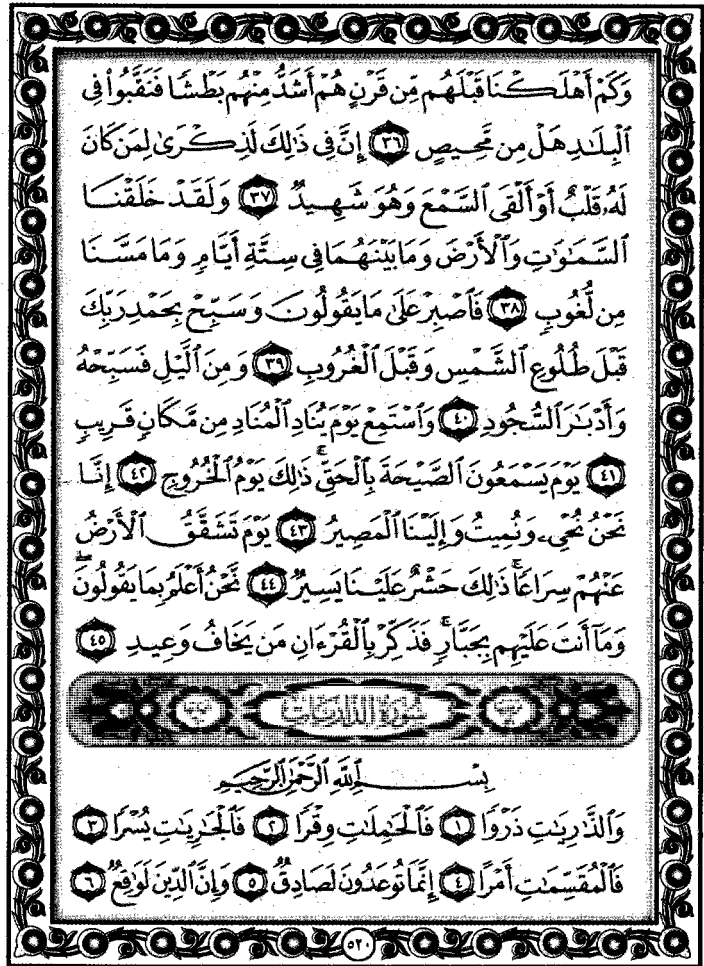 وَكَمْ أَهْلَكْنَا قَبْلَهُم مِّن قَرْنٍ هُمْ أَشَدُّ مِنْهُم بَطْشًا فَنَقَّبُوا۟ فِى
ٱلْبِلَـٰدِ هَلْ مِن مَّحِيصٍ ٣٦ إِنَّ فِى ذَٰلِكَ لَذِكْرَىٰ لِمَن كَانَ
لَهُۥ قَلْبٌ أَوْ أَلْقَى ٱلسَّمْعَ وَهُوَ شَهِيدٌ ٣٧ وَلَقَدْ خَلَقْنَا
ٱلسَّمَـٰوَٰتِ وَٱلْأَرْضَ وَمَا بَيْنَهُمَا فِى سِتَّةِ أَيَّامٍ وَمَا مَسَّنَا
مِن لُّغُوبٍ ٣٨ فَٱصْبِرْ عَلَىٰ مَا يَقُولُونَ وَسَبِّحْ بِحَمْدِ رَبِّكَ
قَبْلَ طُلُوعِ ٱلشَّمْسِ وَقَبْلَ ٱلْغُرُوبِ ٣٩ وَمِنَ ٱلَّيْلِ فَسَبِّحْهُ
وَأَدْبَـٰرَ ٱلسُّجُودِ ٤٠ وَٱسْتَمِعْ يَوْمَ يُنَادِ ٱلْمُنَادِ مِن مَّكَانٍ قَرِيبٍ
٤١ يَوْمَ يَسْمَعُونَ ٱلصَّيْحَةَ بِٱلْحَقِّ ۚ ذَٰلِكَ يَوْمُ ٱلْخُرُوجِ ٤٢ إِنَّا
نَحْنُ نُحْىِۦ وَنُمِيتُ وَإِلَيْنَا ٱلْمَصِيرُ ٤٣ يَوْمَ تَشَقَّقُ ٱلْأَرْضُ
عَنْهُمْ سِرَاعًا ۚ ذَٰلِكَ حَشْرٌ عَلَيْنَا يَسِيرٌ ٤٤ نَّحْنُ أَعْلَمُ بِمَا يَقُولُونَ ۖ
وَمَآ أَنتَ عَلَيْهِم بِجَبَّارٍ ۖ فَذَكِّرْ بِٱلْقُرْءَانِ مَن يَخَافُ وَعِيدِ ٤٥
سُورَةُ الذَّارِيَاتِ
بِسْمِ ٱللَّهِ ٱلرَّحْمَـٰنِ ٱلرَّحِيمِ
وَٱلذَّٰرِيَـٰتِ ذَرْوًا ١ فَٱلْحَـٰمِلَـٰتِ وِقْرًا ٢ فَٱلْجَـٰرِيَـٰتِ يُسْرًا ٣
فَٱلْمُقَسِّمَـٰتِ أَمْرًا ٤ إِنَّمَا تُوعَدُونَ لَصَادِقٌ ٥ وَإِنَّ ٱلدِّينَ لَوَٰقِعٌ ٦
٥٢٠